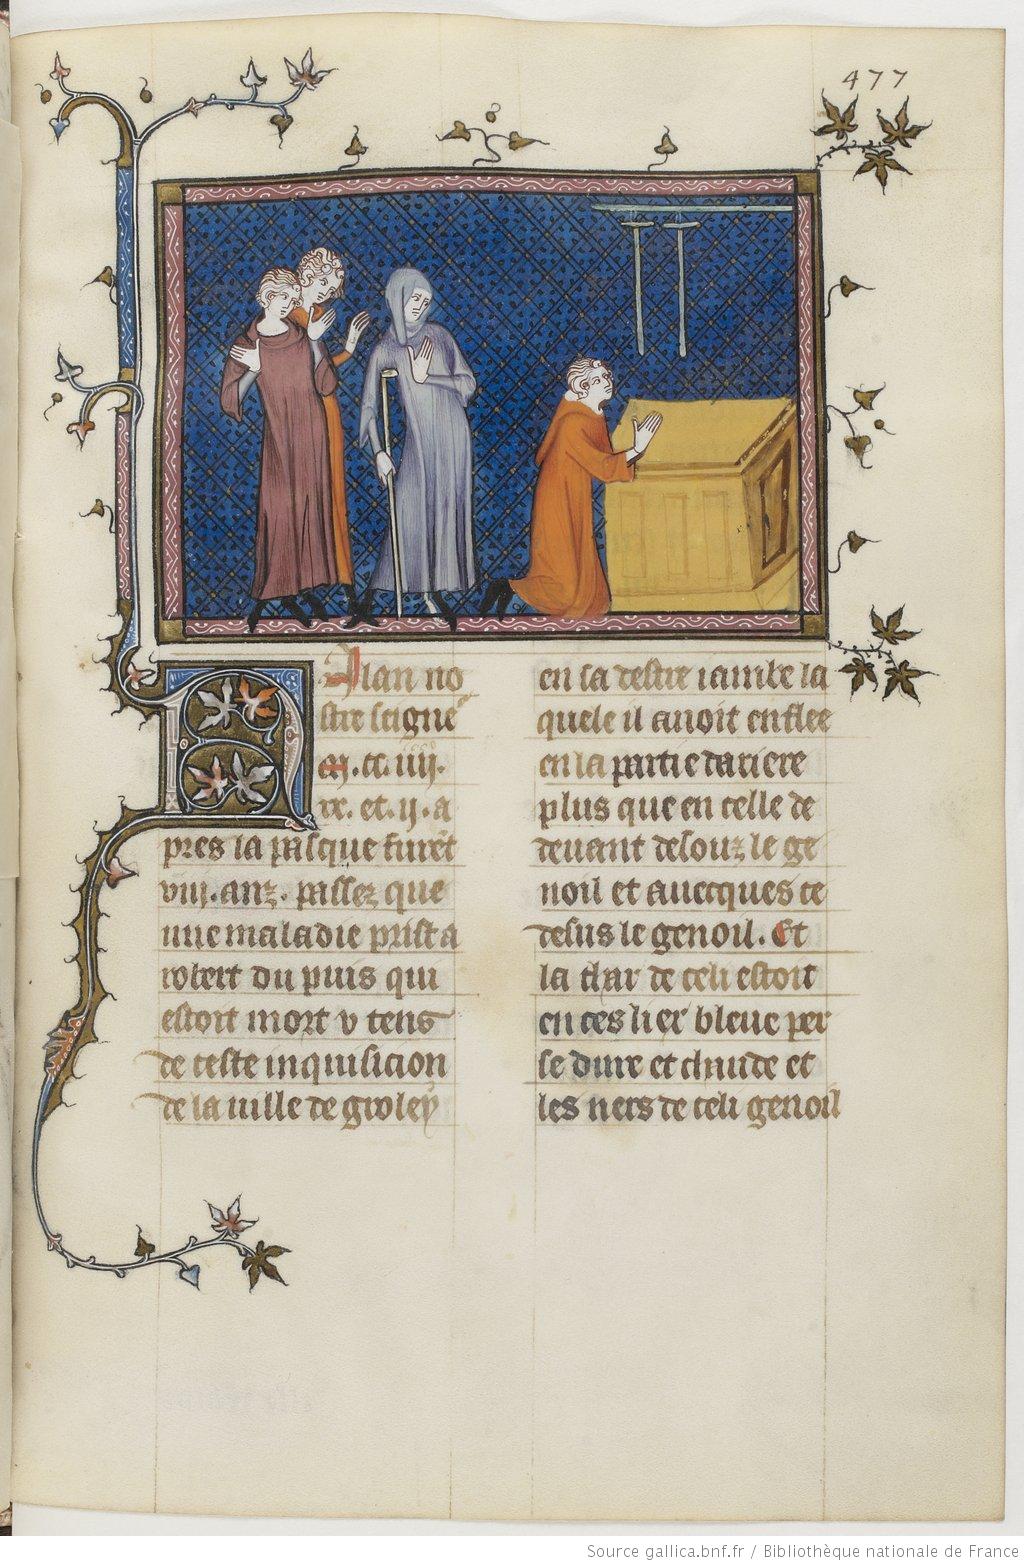 477
A lan no
stre seigne͛
m.cc.iiii.
xx. et. ij. a
pres la pasque furẽt
viij. anz. passez que
une maladie prist a
robert du puis qui
estoit mort v tens
de ceste inquisicion
de la uille de groley
en sa destre iambe la
quele il auoit enflee
en la partie dariere
plus que en celle de
deuant desouz le ge
noil et auecques ce
desus le genoil. Et
la char de celi estoit
en ces lier bleue per
se dure et chaude et
les ners de celi genoil
Source gallica.bnf.fr / Bibliothèque nationale de France